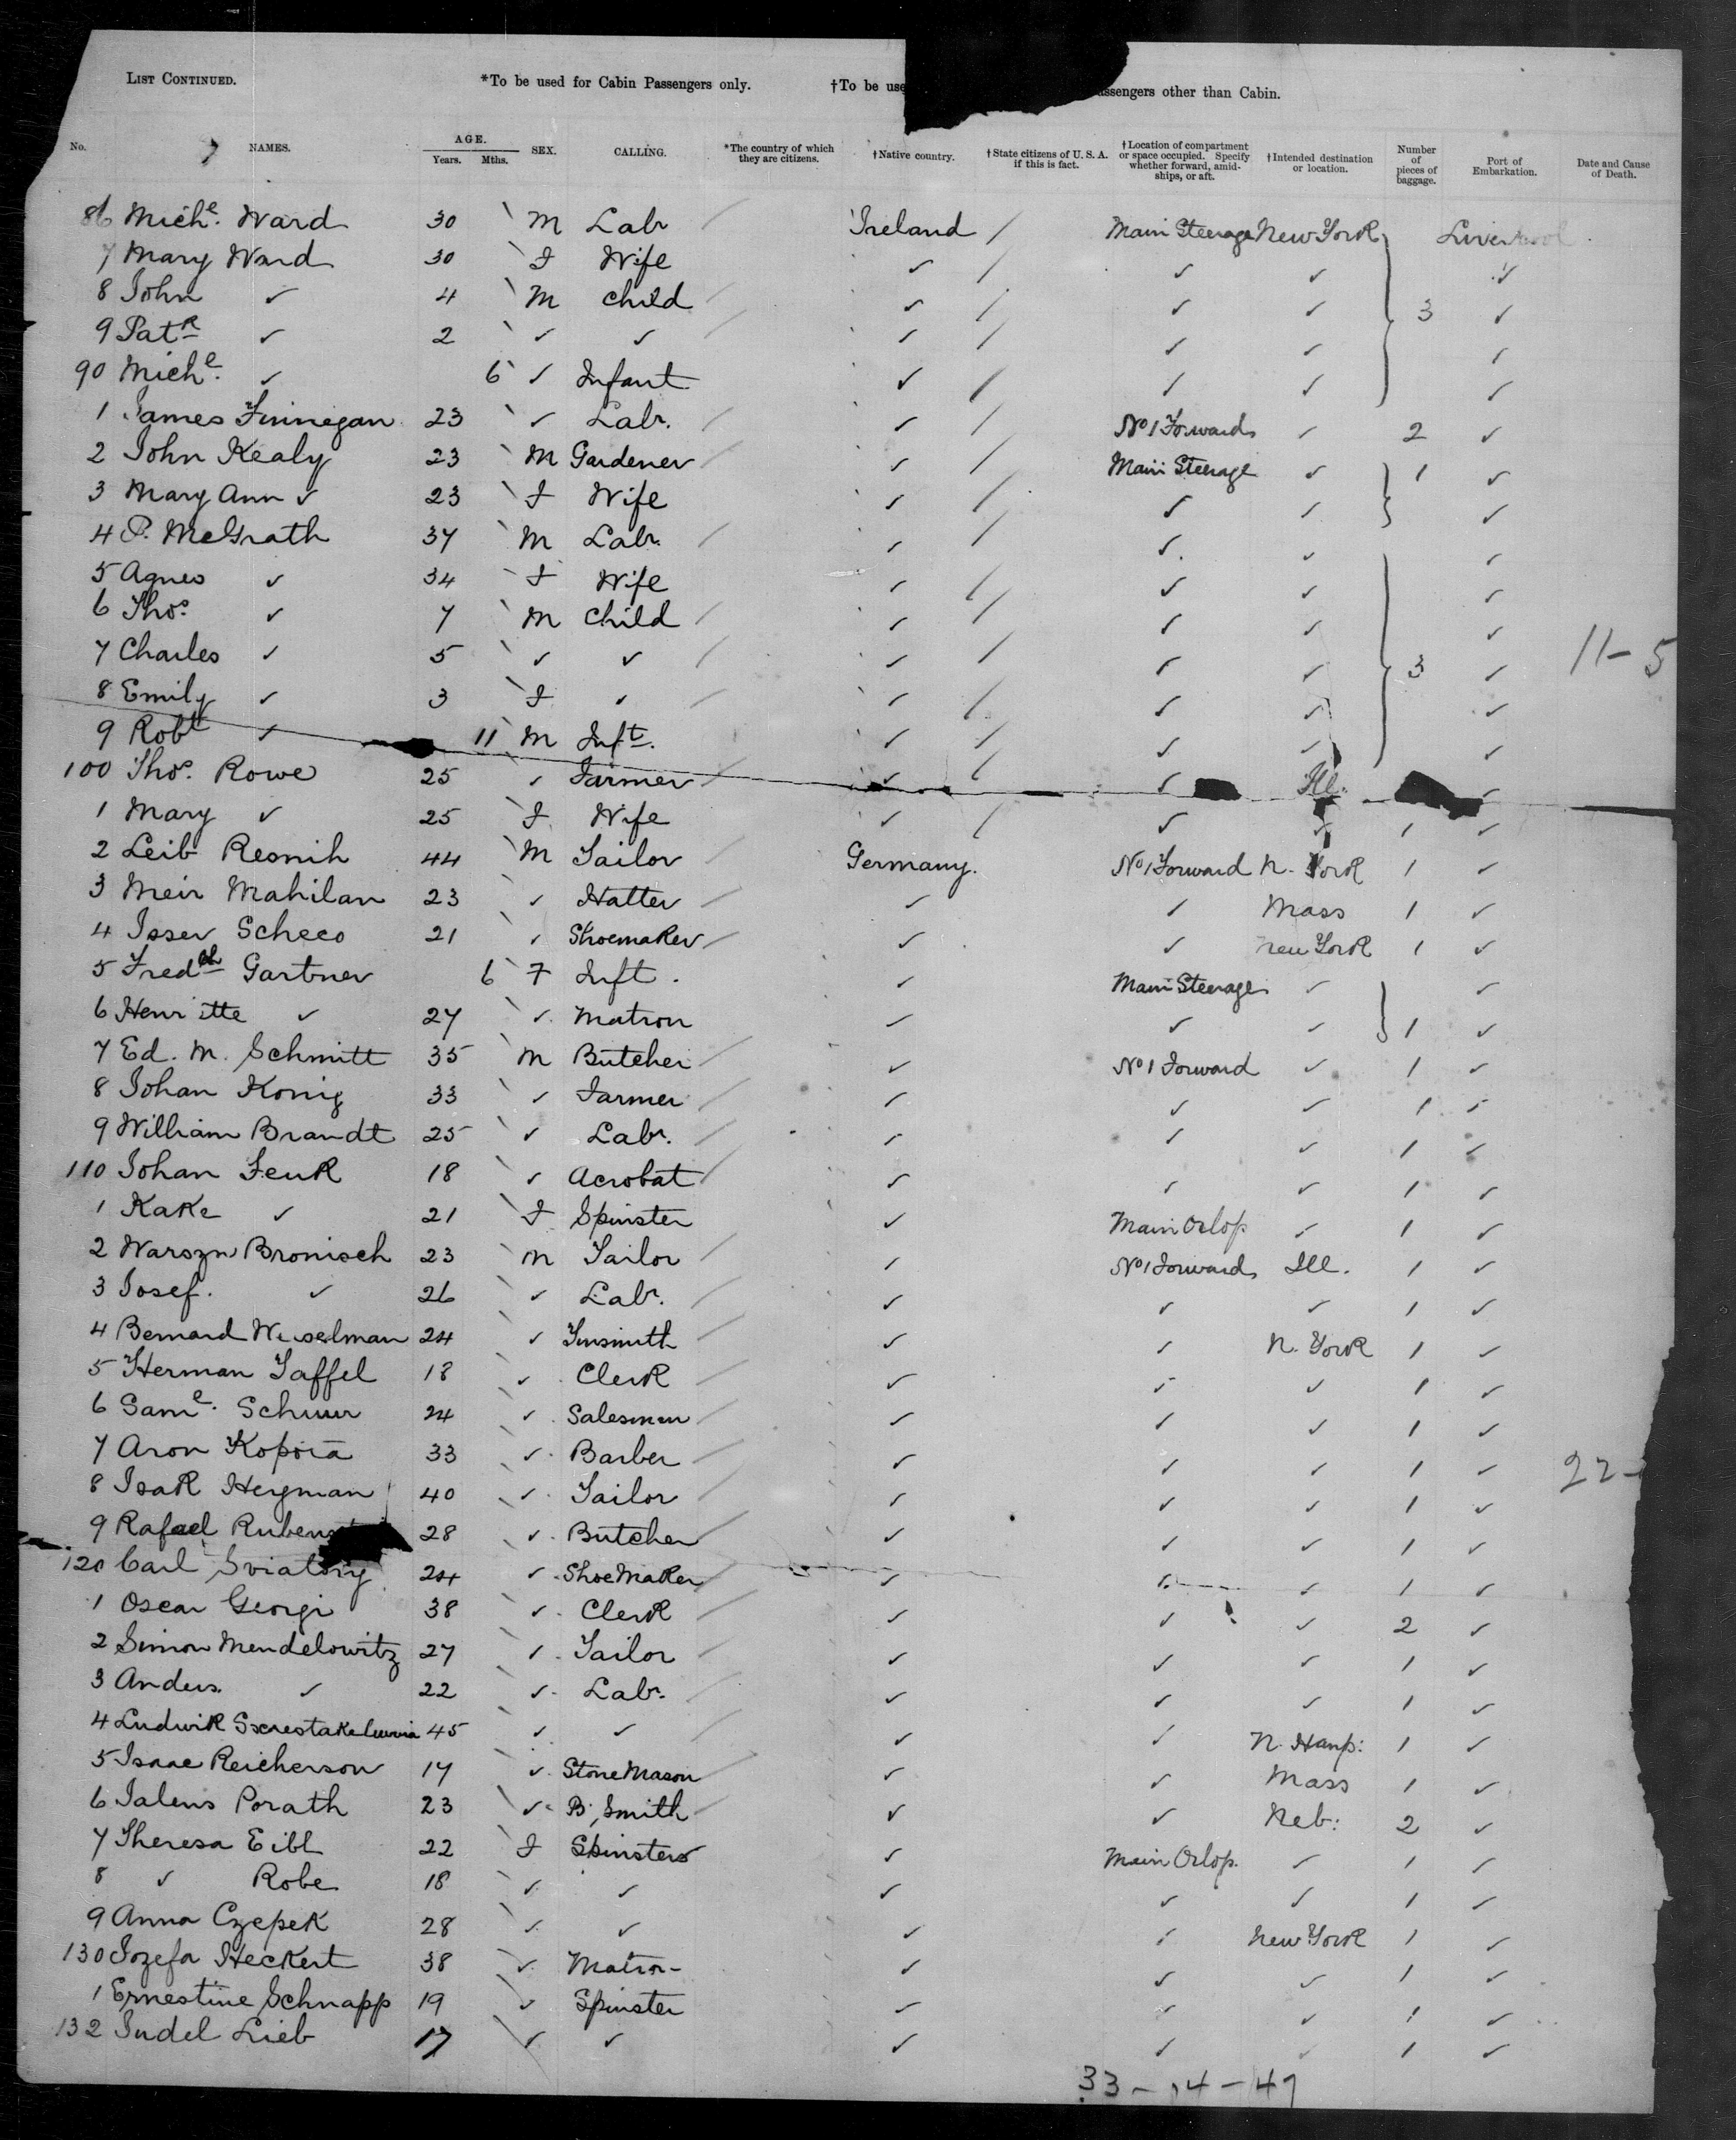 LIST CONTINUED. *To be used for Cabin Passengers only. †To be use assengers other than Cabin.
No. NAMES. AGE. Years. Mths. SEX. CALLING. *The country of which they are citizens. †Native country. †State citizens of U. S. A. if this is fact. †Location of compartment or space occupied. Specify whether forward, amidships, or aft. †Intended destination or location. Number of pieces of baggage. Port of Embarkation. Date and Cause of Death.
86 Miche. Ward 30 M Labr Ireland / Main Steerage New York Liverpool
7 Mary Ward 30 F Wife ✓ / ✓ ✓ ✓
8 John ✓ 4 M Child ✓ / ✓ ✓ 3 ✓
9 Patk ✓ 2 ✓ ✓ ✓ / ✓ ✓ ✓
90 Miche. ✓ 6 ✓ Infant ✓ / ✓ ✓ ✓
1 James Finnegan 23 ✓ Labr. ✓ / No 1 Forward ✓ 2 ✓
2 John Kealy 23 M Gardener ✓ / Main Steerage ✓ 1 ✓
3 Mary Ann ✓ 23 F Wife ✓ / ✓ ✓ ✓
4 P. McGrath 37 M Labr. ✓ / ✓ ✓ ✓
5 Agnes ✓ 34 F Wife ✓ / ✓ ✓ ✓
6 Thos. ✓ 7 M Child ✓ / ✓ ✓ ✓
7 Charles ✓ 5 ✓ ✓ ✓ / ✓ ✓ 3 ✓ 11-5
8 Emily ✓ 3 F ✓ ✓ / ✓ ✓ ✓
9 Robt ✓ 11 M Inft. ✓ / ✓ ✓ ✓
100 Thos. Rowe 25 ✓ Farmer ✓ / ✓ Ill. ✓
1 Mary ✓ 25 F Wife ✓ / ✓ ✓ 1 ✓
2 Leib Resnih 44 M Tailor Germany. No 1 Forward N. York 1 ✓
3 Meir Mahilan 23 ✓ Hatter ✓ ✓ Mass 1 ✓
4 Isser Scheco 21 ✓ Shoemaker ✓ ✓ New York 1 ✓
5 Fredch Gartner 6 F Inft. ✓ Main Steerage ✓ ✓
6 Henriette ✓ 27 ✓ Matron ✓ ✓ ✓ 1 ✓
7 Ed. M. Schmitt 35 M Butcher ✓ No 1 Forward ✓ 1 ✓
8 Johan Konig 33 ✓ Farmer ✓ ✓ ✓ 1 ✓
9 William Brandt 25 ✓ Labr. ✓ ✓ ✓ 1 ✓
110 Johan Fenk 18 ✓ Acrobat ✓ ✓ ✓ 1 ✓
1 Kake ✓ 21 F Spinster ✓ Main Orlop ✓ 1 ✓
2 Warszn Bronisch 23 M Tailor ✓ No 1 Forward Ill. 1 ✓
3 Josef. ✓ 26 ✓ Labr. ✓ ✓ ✓ 1 ✓
4 Bernard Weiselman 24 ✓ Tinsmith ✓ ✓ N. York 1 ✓
5 Herman Jaffel 18 ✓ Clerk ✓ ✓ ✓ 1 ✓
6 Saml. 24 ✓ Salesman ✓ ✓ ✓ 1 ✓
7 Aron Kopoia 33 ✓ Barber ✓ ✓ ✓ 1 ✓ 22-
8 Isak Heyman 40 ✓ Tailor ✓ ✓ ✓ 1 ✓
9 Rafael Rubens 28 ✓ Butcher ✓ ✓ ✓ 1 ✓
120 Carl Sviatory 24 ✓ ShoeMaker ✓ ✓ ✓ 1 ✓
1 Oscar Georgi 38 ✓ Clerk ✓ ✓ ✓ 2 ✓
2 Simon Mendelowitz 27 ✓ Tailor ✓ ✓ ✓ 1 ✓
3 Anders ✓ 22 ✓ Labr. ✓ ✓ ✓ 1 ✓
4 Ludwik 45 ✓ ✓ ✓ ✓ N. Hamp: 1 ✓
5 Isaac Reicherson 17 ✓ Stone Mason ✓ ✓ Mass 1 ✓
6 Porath 23 ✓ B. Smith ✓ ✓ Neb: 2 ✓
7 Theresa Eibl 22 F Spinsters ✓ Main Orlop. ✓ 1 ✓
8 ✓ Robe 18 ✓ ✓ ✓ ✓ ✓ 1 ✓
9 Anna Czepek 28 ✓ ✓ ✓ ✓ New York 1 ✓
130 Jozefa Heckert 38 ✓ Matron ✓ ✓ ✓ 1 ✓
1 Ernestine Schnapp 19 ✓ Spinster ✓ ✓ ✓ 1 ✓
132 Judel Lieb 17 ✓ ✓ ✓ ✓ ✓ 1 ✓
33-14-47